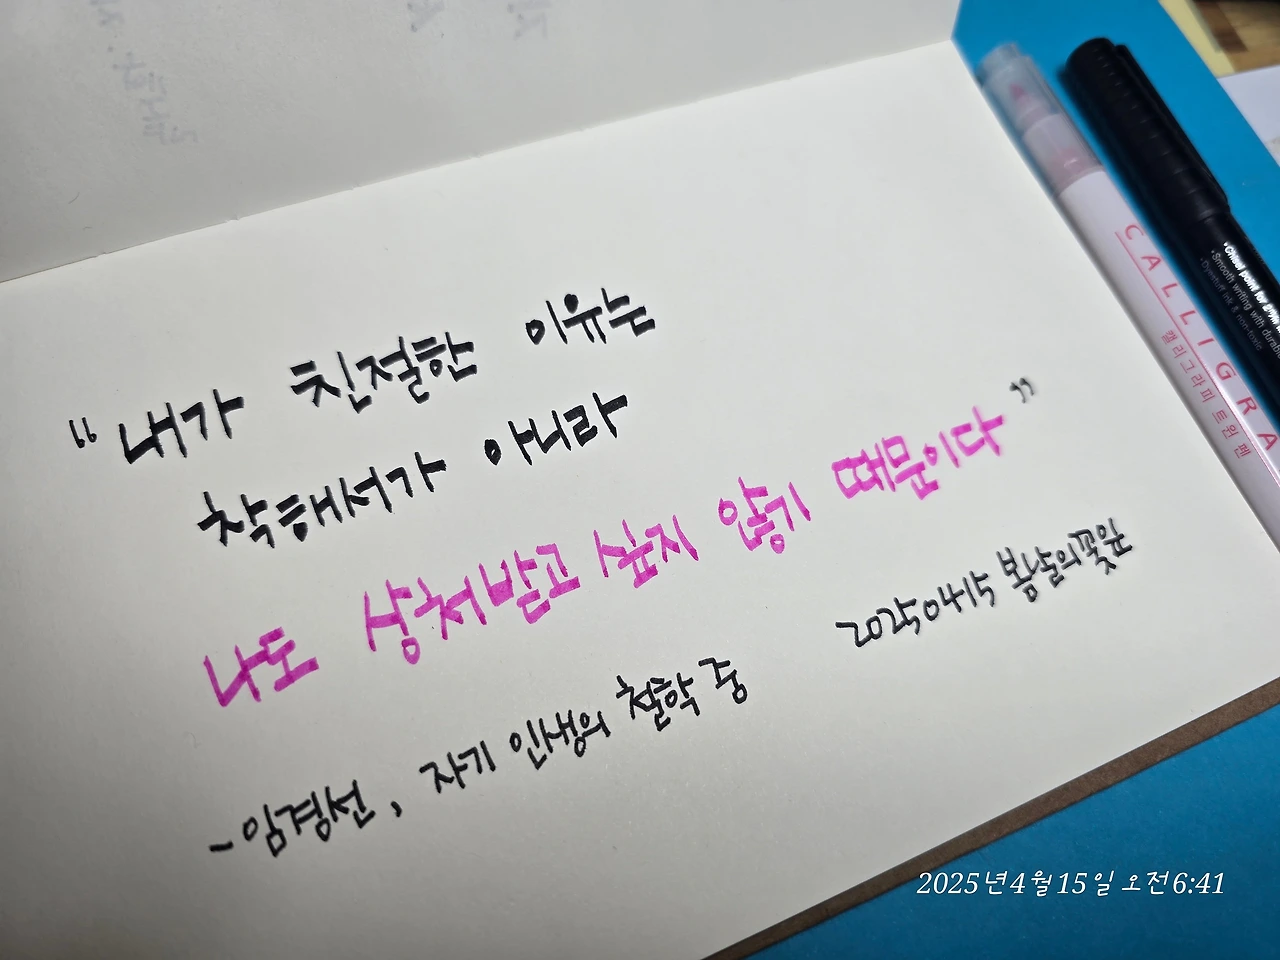 “내가 친절한 이유는
착해서가 아니라
나도 상처받고 싶지 않기 때문이다”
20250415 봄날의꽃잎
-임경선, 자기 인생의 철학 중
CALLIGRA
캘리그라피 트윈 펜
•Chisel point for
•Smooth writing with
•Dyestuff ink & non-toxic
2025년 4월 15일 오전 6:41